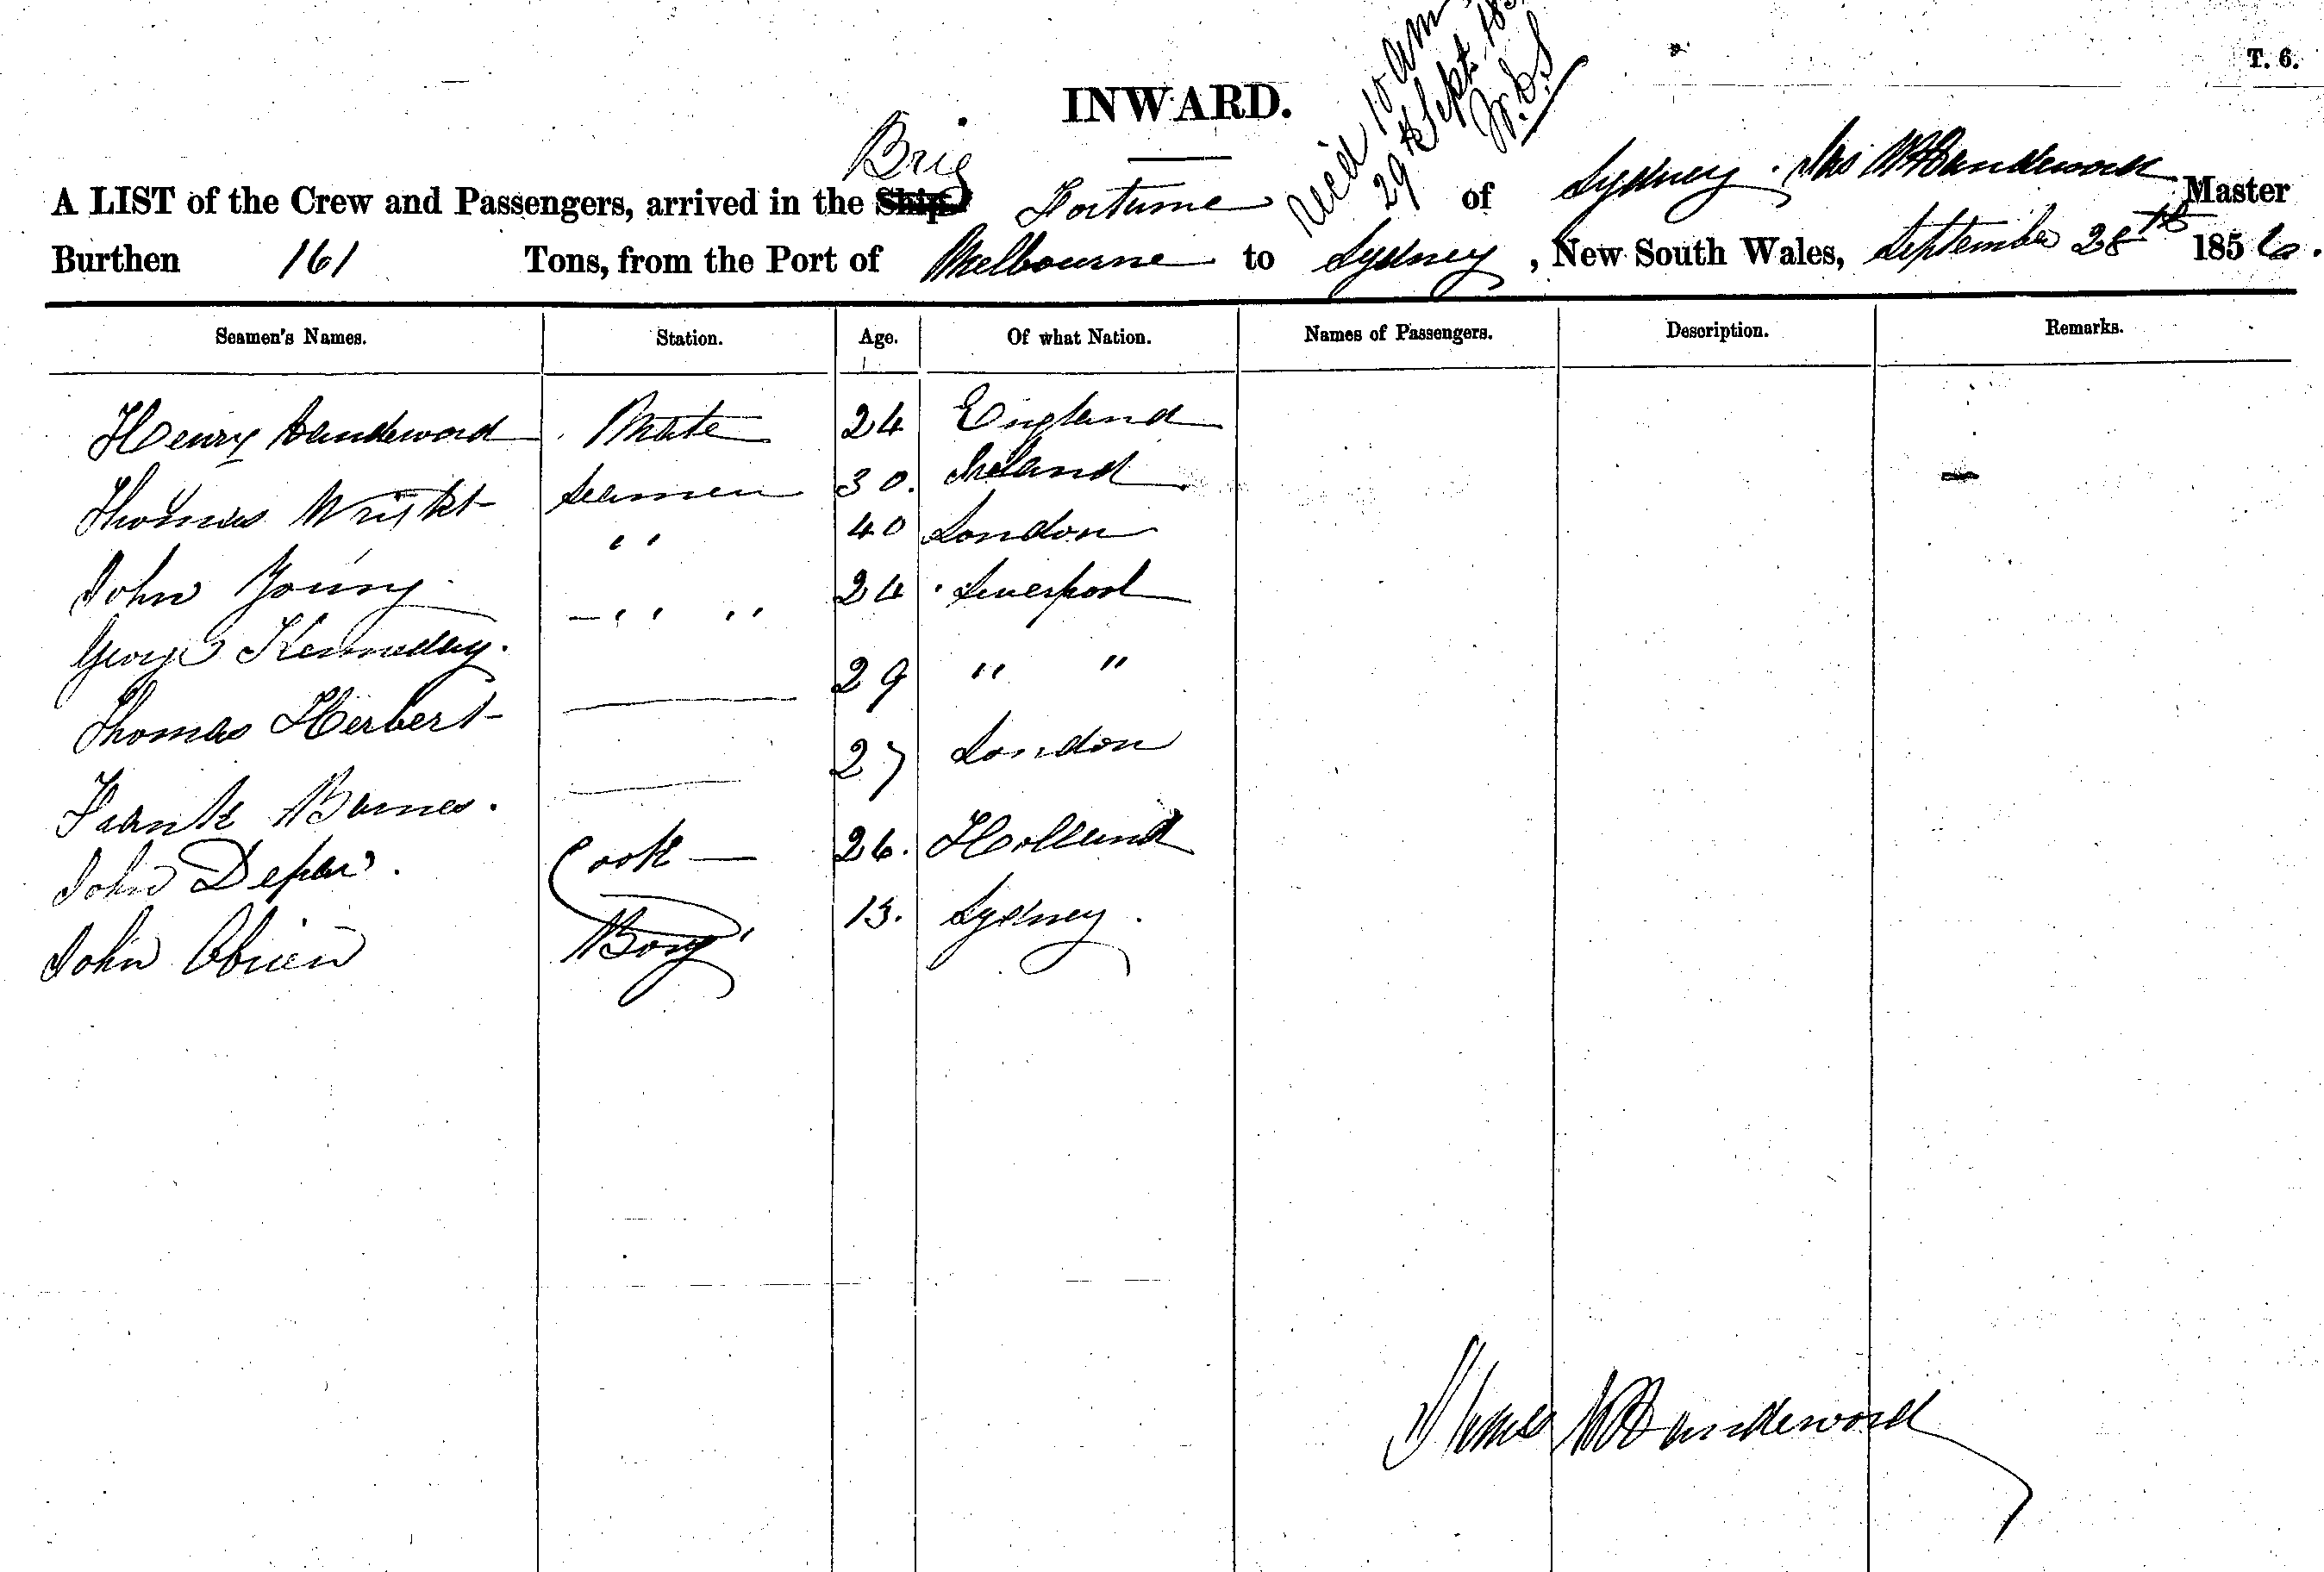 T. 6.
INWARD.
Recd 10 am
29th Sept. 185
A LIST of the Crew and Passengers, arrived in the Ship Brig Fortune of Sydney. Jas Master
Burthen 161 Tons, from the Port of Melbourne to Sydney, New South Wales, September 28th 1856.
Seamen's Names. Station. Age. Of what Nation. Names of Passengers. Description. Remarks.
Henry Sandeword Mate 24 England
Thomas Wright Seamen 30. Ireland
John Young " 40 London
George Kennedey. " " 24 Liverpool
Thomas Herbert — 29 " "
Frank Barnes. — 27 London
John Cook — 26. Holland
John Obrien Boy 15. Sydney.
James Sandeword